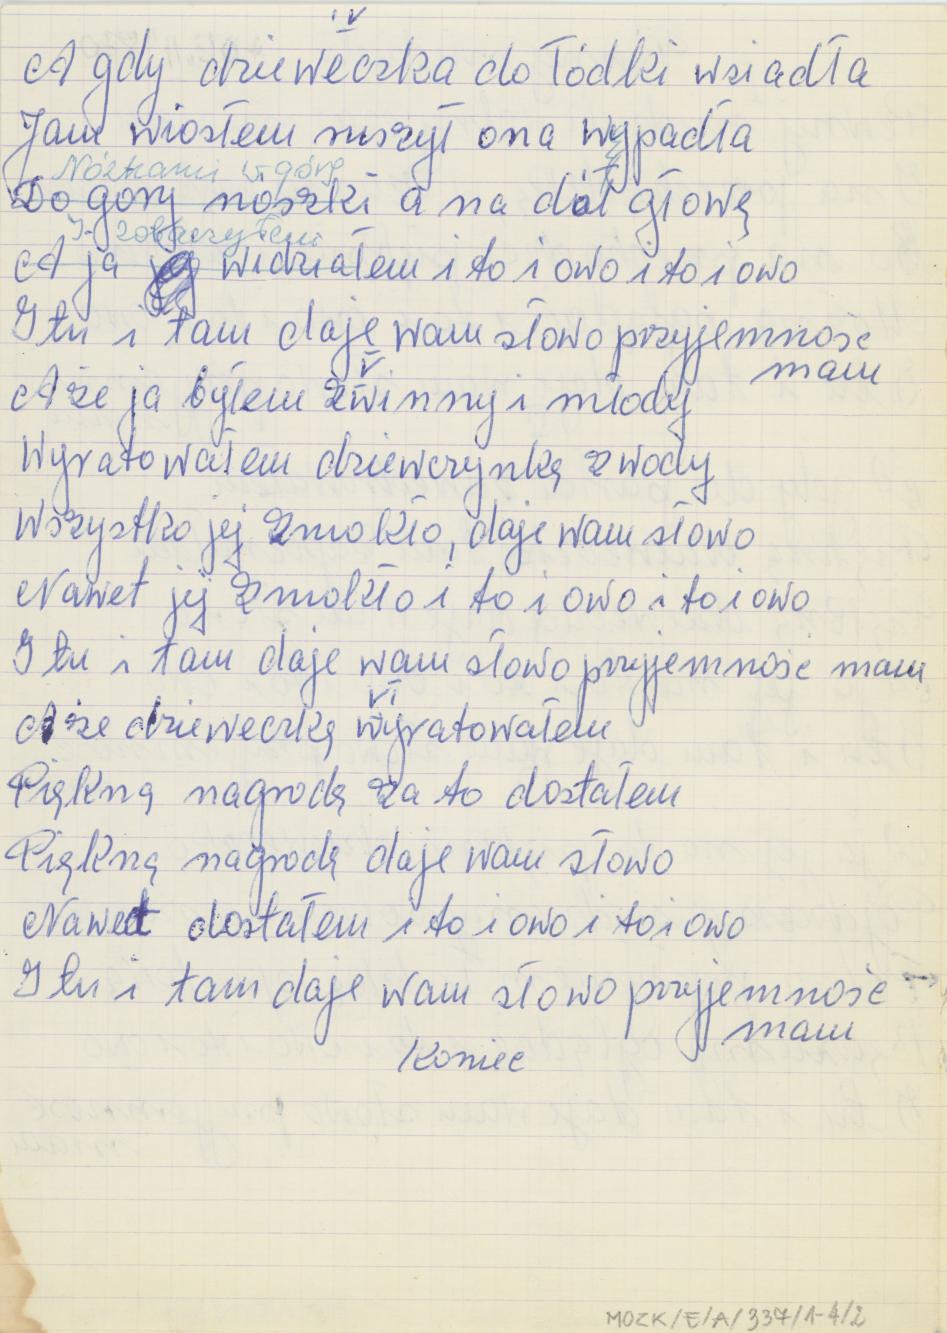 IV
A gdy dzieweczka do łódki wsiadła
Jam wiosłem ruszył ona wypadła
Nóżkami w górę
Do gory noszki a na dół głową
I zobaczyłem
A ja widziałem i to i owo i to i owo
I tu i tam daje wam słowo przyjemnosc
mam
V
A że ja byłem zwinny i młody
Wyratowałem dziewczynką z wody
Wszystko jej zmokło, daje wam słowo
Nawet jej zmokło i to i owo i to i owo
I tu i tam daje wam słowo przyjemnośc mam
VI
A że dzieweczką wyratowałem
Piąkną nagrodą za to dostałem
Piąkną nagrodą daje wam słowo
Nawet dostałem i to i owo i to i owo
I tu i tam daje wam słowo przyjemnośc
mam
Koniec
MOZK/E/A/337/1-4/2